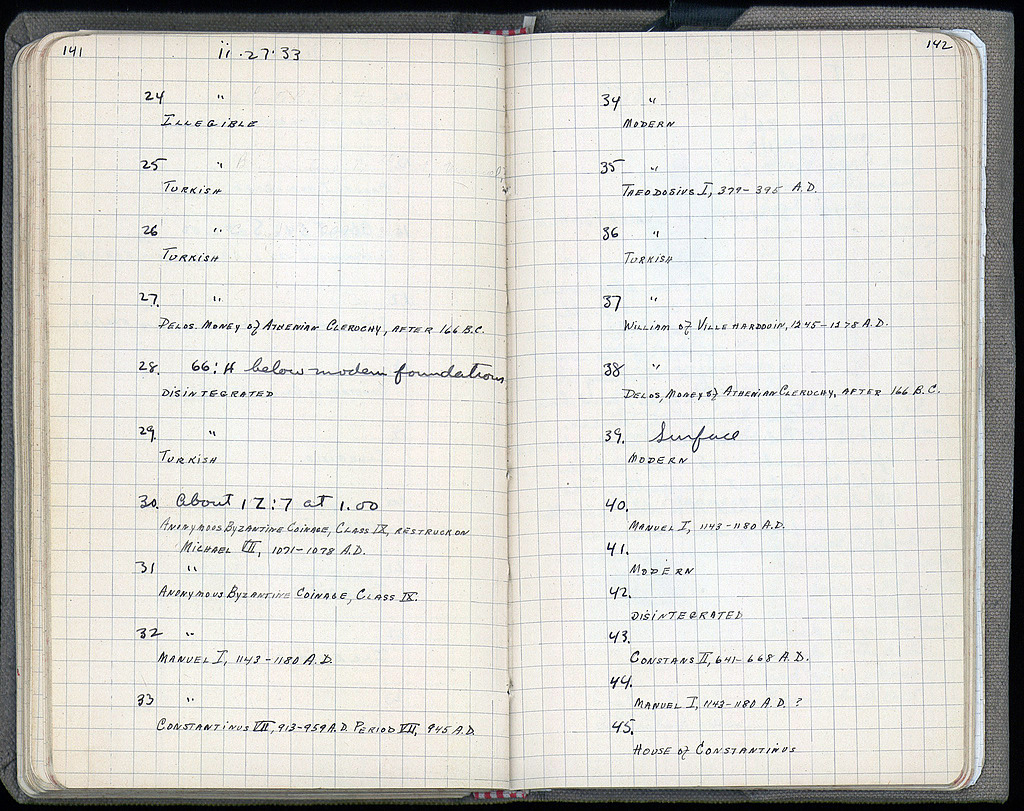 141
ii·27·33
24 "
ILLEGIBLE
25 "
TURKISH
26 "
TURKISH
27. "
DELOS. MONEY of ATHENIAN CLERUCHY, AFTER 166 B.C.
28. 66:H below modern foundations
DISINTEGRATED
29. "
TURKISH
30. About 12:7 at 1.00
ANONYMOUS BYZANTINE COINAGE, CLASS IX, RESTRUCK ON
MICHAEL VII, 1071-1078 A.D.
31 "
ANONYMOUS BYZANTINE COINAGE, CLASS IX.
32 "
MANUEL I, 1143-1180 A.D.
33 "
CONSTANTINUS VII, 913-959 A.D. PERIOD VII, 945 A.D.
142
34 "
MODERN
35 "
THEODOSIUS I, 379-395 A.D.
36 "
TURKISH
37 "
WILLIAM of VILLEHARDOUIN, 1245-1278 A.D.
38 "
DELOS, MONEY of ATHENIAN CLERUCHY, AFTER 166 B.C.
39. Surface
MODERN
40.
MANUEL I, 1143-1180 A.D.
41.
MODERN
42.
DISINTEGRATED
43.
CONSTANS II, 641-668 A.D.
44.
MANUEL I, 1143-1180 A.D. ?
45.
HOUSE of CONSTANTINUS